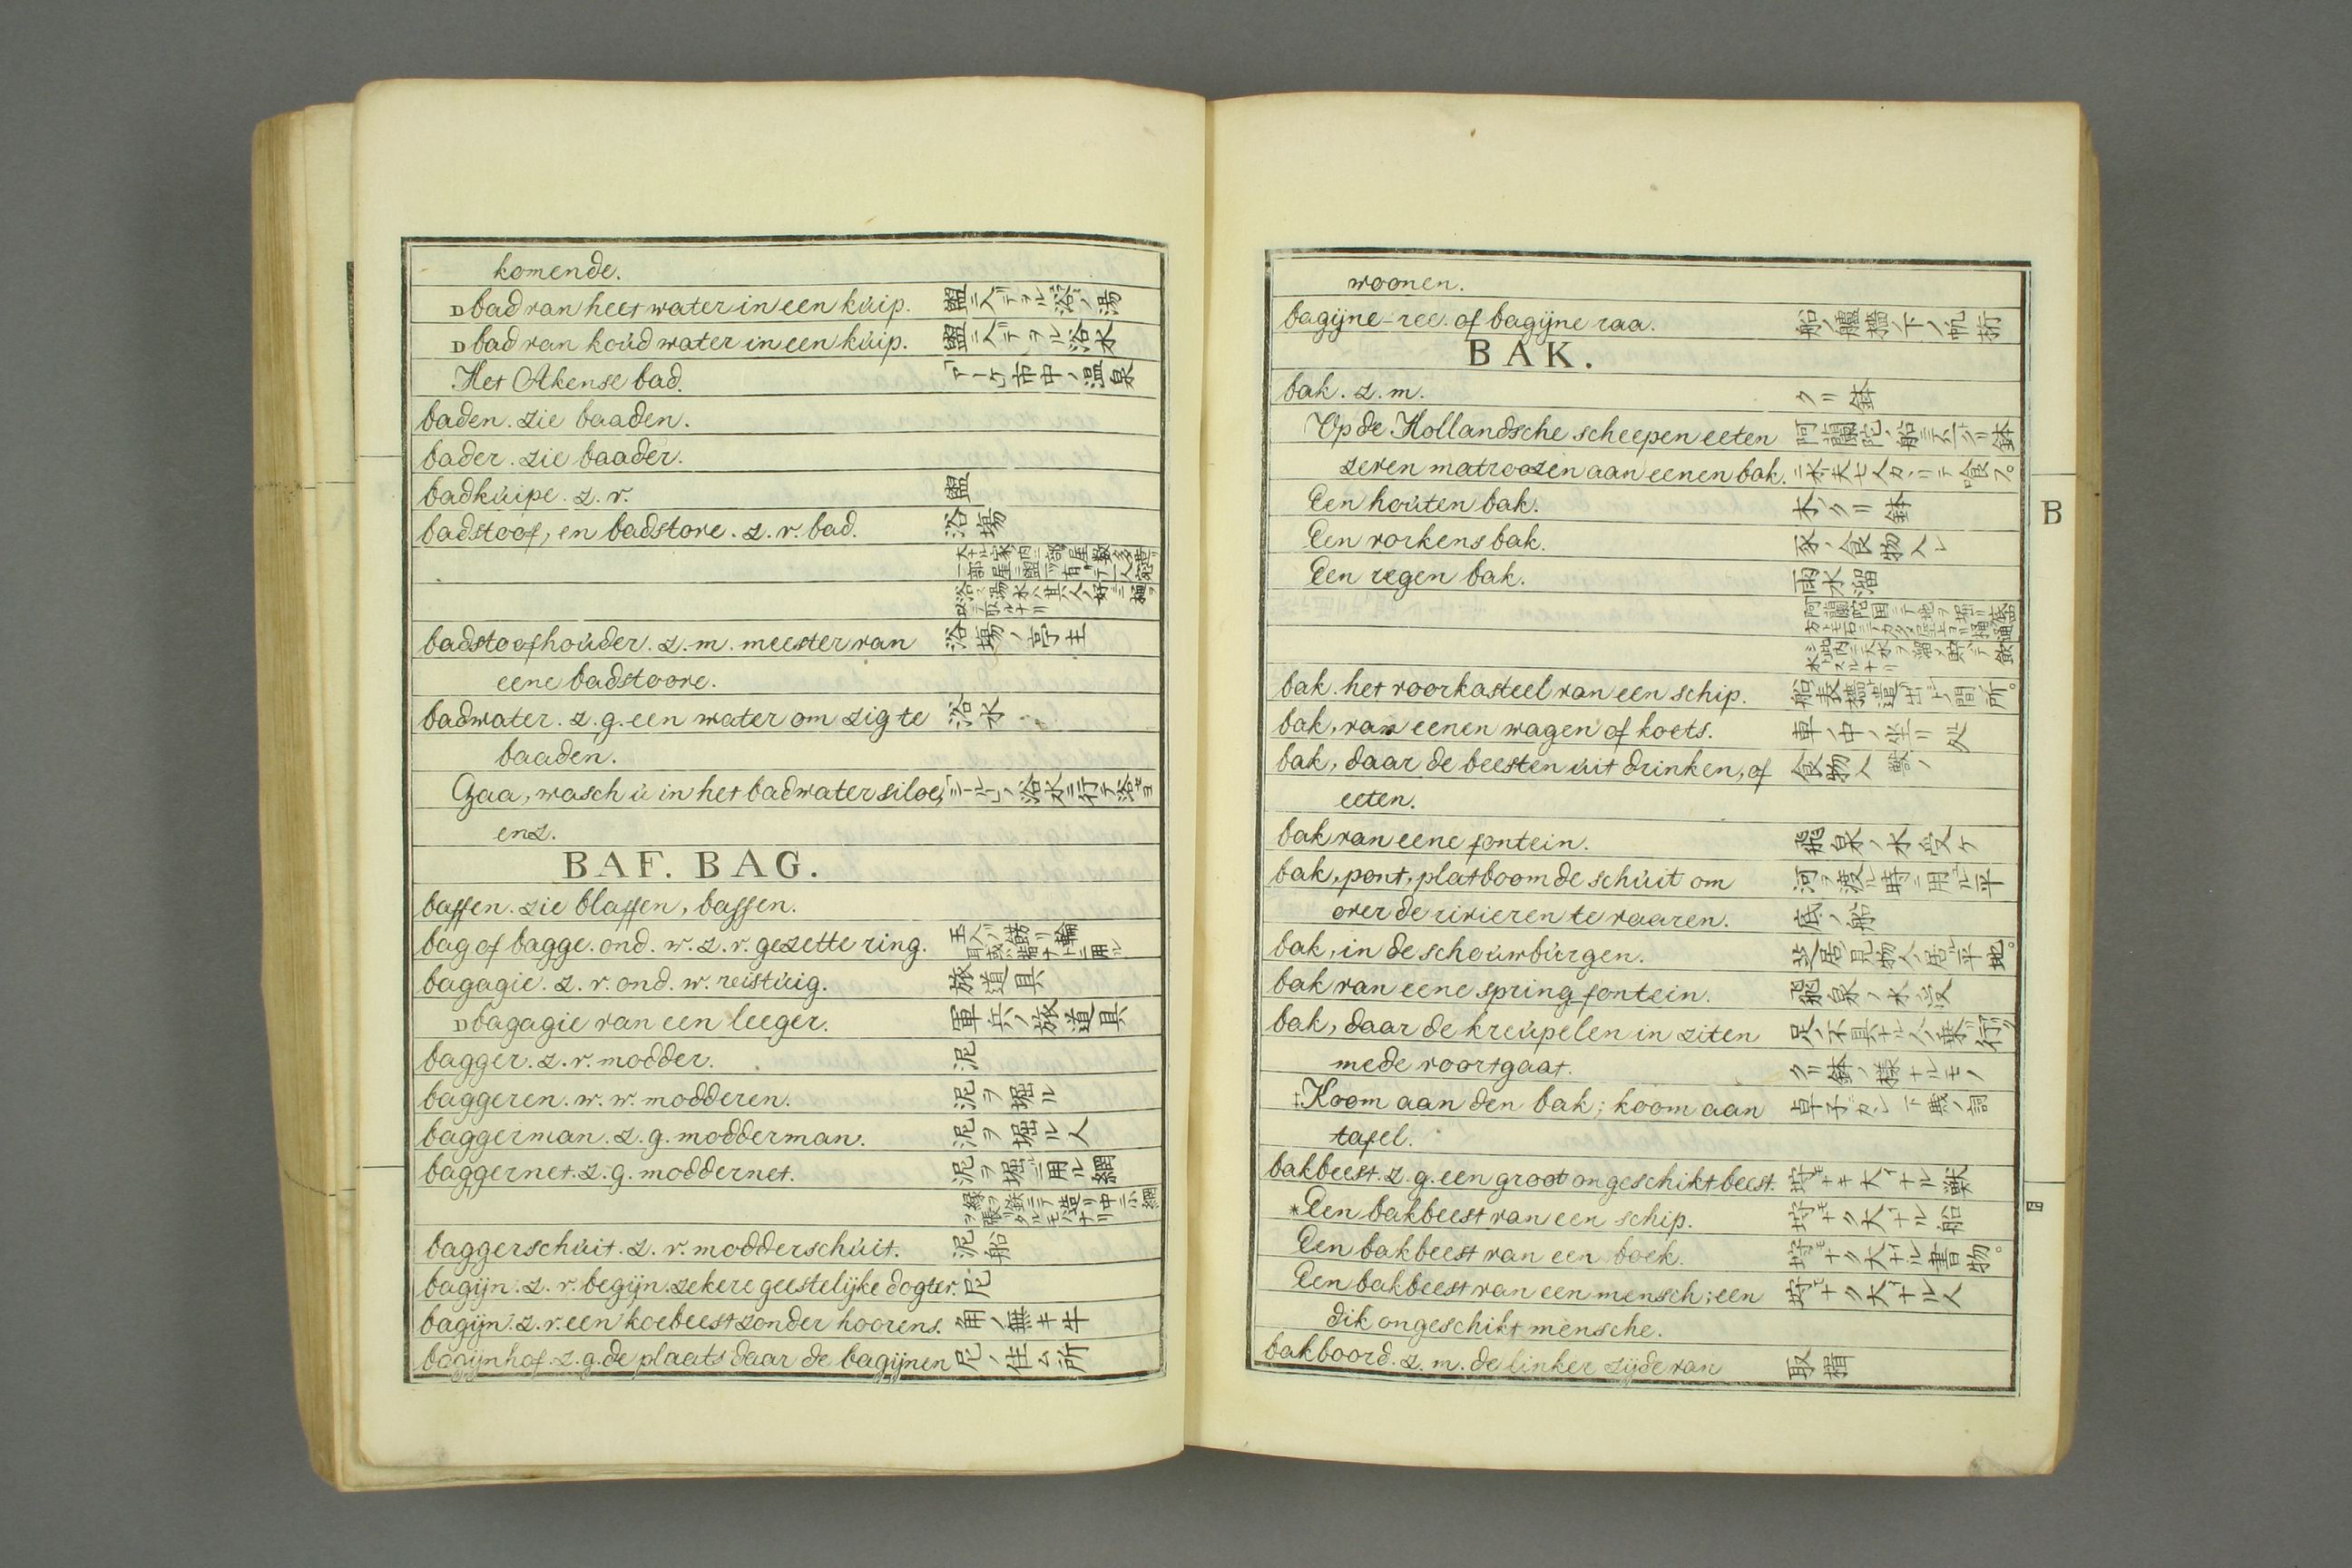 komende.
D bad van heet water in een kúip. 盥ニ入テアル浴ノ湯
D bad van koúd water in een kúip. 盥ニ入テアル浴水
Het Akense bad. 「アーケン」市中ノ温泉
baden. zie baaden.
bader. zie baader.
badkúipe. z. v. 盥
badstoof, en badstove. z. v. bad. 浴場
badstoofhoúder. z. m. meester van 浴場ノ亭主
eene badstoove.
badwater. z. g. een water om zig te 浴水
baaden.
Gaa, wasch ú in het badwater siloe, 浴水ニ行テ浴セヨ
enz.
BAF. BAG.
baffen. zie blaffen, bassen.
bag of bagge. ond. w. z. v. gezette ring.
bagagie. z. v. ond. w. reistúig. 旅道具
D bagagie van een leeger. 軍兵ノ旅道具
bagger. z. v. modder. 泥
baggeren. w. w. modderen. 泥ヲ堀ル
baggerman. z. g. modderman. 泥ヲ堀ル人
baggernet. z. g. moddernet. 泥ヲ堀ルニ用ル網
縁ヲ鉄ニテ造リ中ニ小網ヲ張リタルモノナリ
baggerschúit. z. v. modderschúit. 泥船
bagijn. z. v. begijn. zekere geestelijke dogter. 尼
bagijn. z. v. een koebeest zonder hoorens. 角ノ無キ牛
bagijnhof. z. g. de plaats daar de bagijnen 尼ノ住ム所
woonen.
bagijne-ree. of bagijne raa. 船ノ艫檣ノ下ノ帆桁
BAK.
bak. z. m. クリ鉢
Op de Hollandsche scheepen eeten 阿蘭陀ノ船ニテハ一クリ鉢
zeven matroozen aan eenen bak. ニ水夫七人カヽリテ喰フ。
Een hoúten bak. 木ノクリ鉢
Een vorkens bak. 豕ノ食物入レ
Een regen bak. 雨水溜
bak. het voorkasteel van een ship.
bak, van eenen wagen of koets. 車ノ中ノ坐リ処
bak, daar de beesten úit drinken, of 獣ノ食物入
eeten.
bak van eene fontein. 飛泉ノ水受ケ
bak, pont, platboomde schúit om 河ヲ渡ル時ニ用ル平
over de rivieren te vaaren. 底ノ船
bak, in de schoúwbúrgen. 芝居見物人ノ居ル平地。
bak van eene spring fontein. 飛泉ノ水受
bak, daar de kreúpelen in ziten 足ノ不具ナル人ノ乗リ行ク
mede voortgaat. クリ鉢ノ様ナルモノ
‡ Koom aan den bak; koom aan 卓子ニカヽレ 下賎ノ詞
tafel.
bakbeest. z. g. een groot ongeschikt beest. 大ナル獣
* Een bakbeest van een schip. 大ナル船
Een bakbeest van een boek. 大ナル書物。
Een bakbeest van een mensch; een 大ナル人
dik ongeschikt mensche.
bakboord. z. m. de linker zijde van 取楫
B